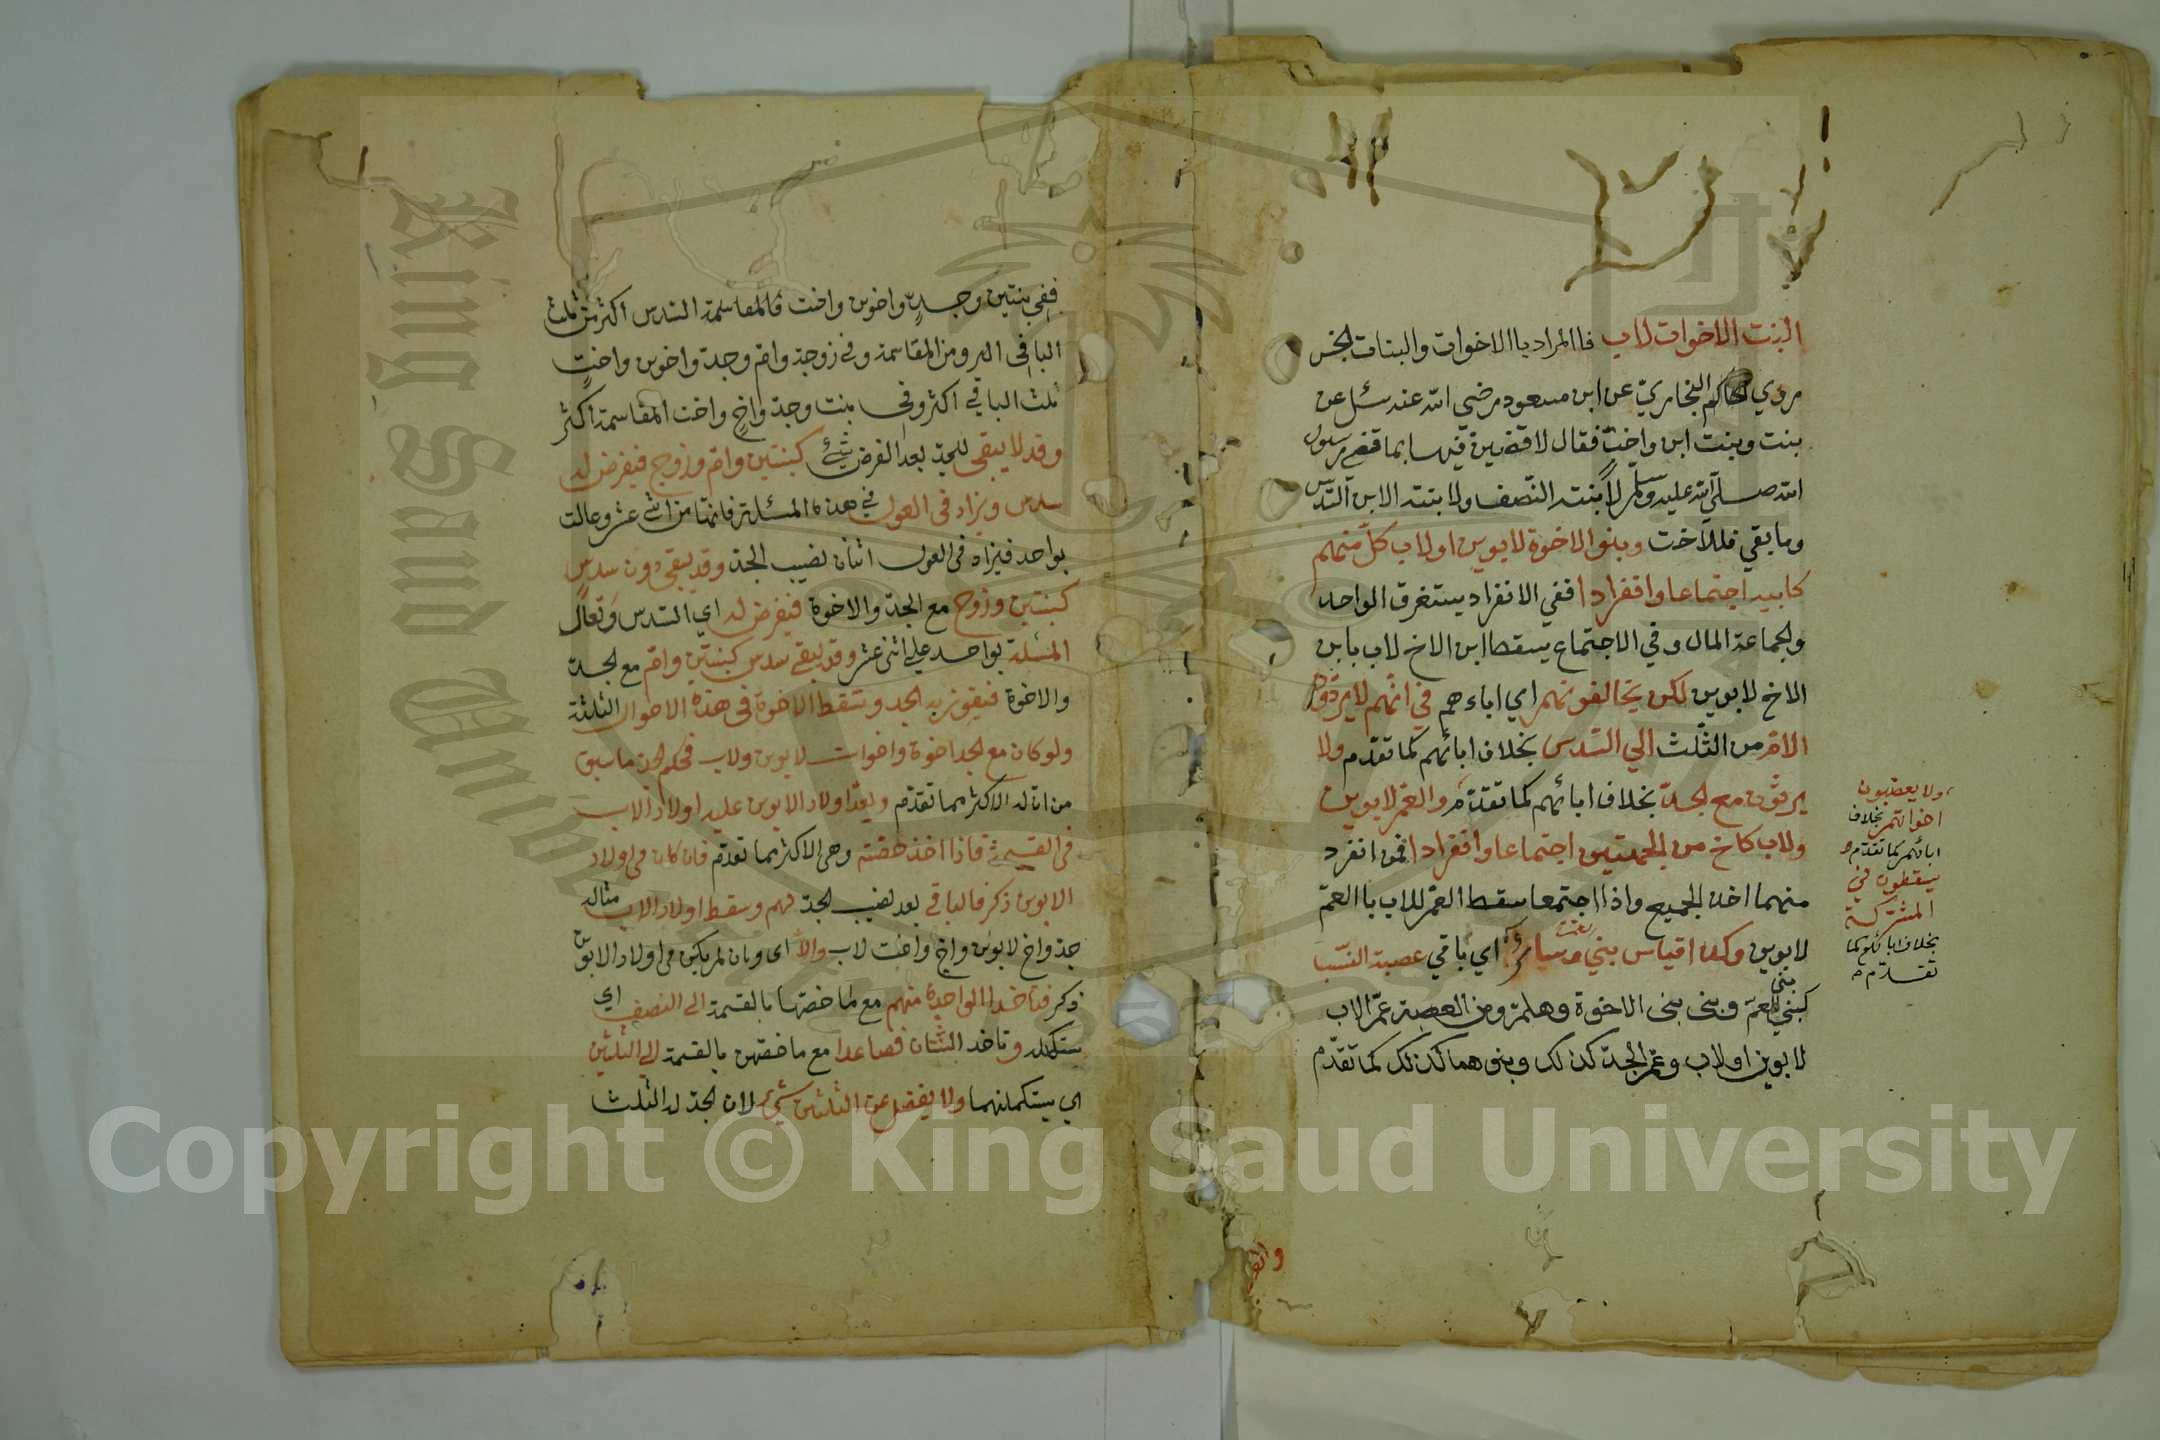 البنت الاخوات لاب فاالمراد باالاخوات والبنات الجنس
روي الحاكم البخاري عن ابن مسعود رضي الله عنه سئل عن
بنت وبنت ابن واخت فقال لاقضين فيها بما قضى رسول
الله صلى الله عليه وسلم لابنته النصف ولابنته الابن السدس
وما بقي فللاخت وبنوا الاخوة لابوين او لاب كل منهم
كابيه اجتماعا وانفرادا ففي الانفراد يستغرق الواحد
والجماعة المال وفي الاجتماع يسقط ابن الاخ لاب بابن
الاخ لابوين لكن يخالفونهم اي اباءهم في انهم لا يردون
الام من الثلث الي السدس بخلاف ابائهم كما تقدم ولا
يرثون مع الجد بخلاف ابائهم كما تقدم والعم لابوين
ولاب كاخ من الجهتين اجتماعا وانفرادا فمن انفرد
منهما اخذ الجميع واذا اجتمعا سقط العم للاب باالعم
لابوين وكذا قياس بني وسائر اي باقي عصبة النسب
كبني بني العم وبنى بنى الاخوة وهلم ومن العصبة عم الاب
لابوين او لاب وعم الجد كذلك وبنوهما كذلك كما تقدم
ولا يعصبون
اخواتهم بخلاف
ابائهم كما تقدم و
يسقطون في
المشتركة
بخلاف ابائهم كما
تقدم
ففي بنتين وجد واخوين واخت فالمقاسمة السدس اكثر من ثلث
الباقي ومن المقاسمة وفي زوجة وام وجد واخوين واخت
ثلث الباقي اكثر وفي بنت وجد واخ واخت المقاسمة اكثر
وقد لا يبقى للجد بعد الفرض شئ كبنتين وام وزوج فيفرض له
سدس ويزاد فى العول في هذه المسئلة فانها من اثنى عشر وعالت
بواحد فيزاد فى العول اثنان نصيب الجد وقد يبقى دون سدس
كبنتين وزوج مع الجد والاخوة فيفرض له اي السدس وتعال
المسئلة بواحد علي اثنى عشر وقد يبقى سدس كبنتين وام مع الجد
والاخوة فيفوز به الجد وتسقط الاخوة فى هذه الاحوال الثلثة
ولو كان مع الجد اخوة واخوات لابوين ولاب فحكم الجد ما سبق
من ان له الاكثر مما تقدم ويعد اولاد الابوين عليه اولاد الاب
فى القسمة فاذا اخذ حصته وهى الاكثر مما تقدم فان كان فى اولاد
الابوين ذكر فالباقي بعد نصيب الجد لهم وسقط اولاد الاب مثاله
جد واخ لابوين واخ واخت لاب والا اى وان لم يكن فى اولاد الابوين
ذكر فتاخذ الواحدة منهم مع لما خصتها بالقسمة الى النصف اي
تستكمله وتاخذ الثنتان فصاعدا مع ما خصهن بالقسمة الي الثلثين
اي يستكملنهما ولا يفضل عن الثلثين شئ لان الجد له الثلث
Copyright © King Saud University
King Saud University